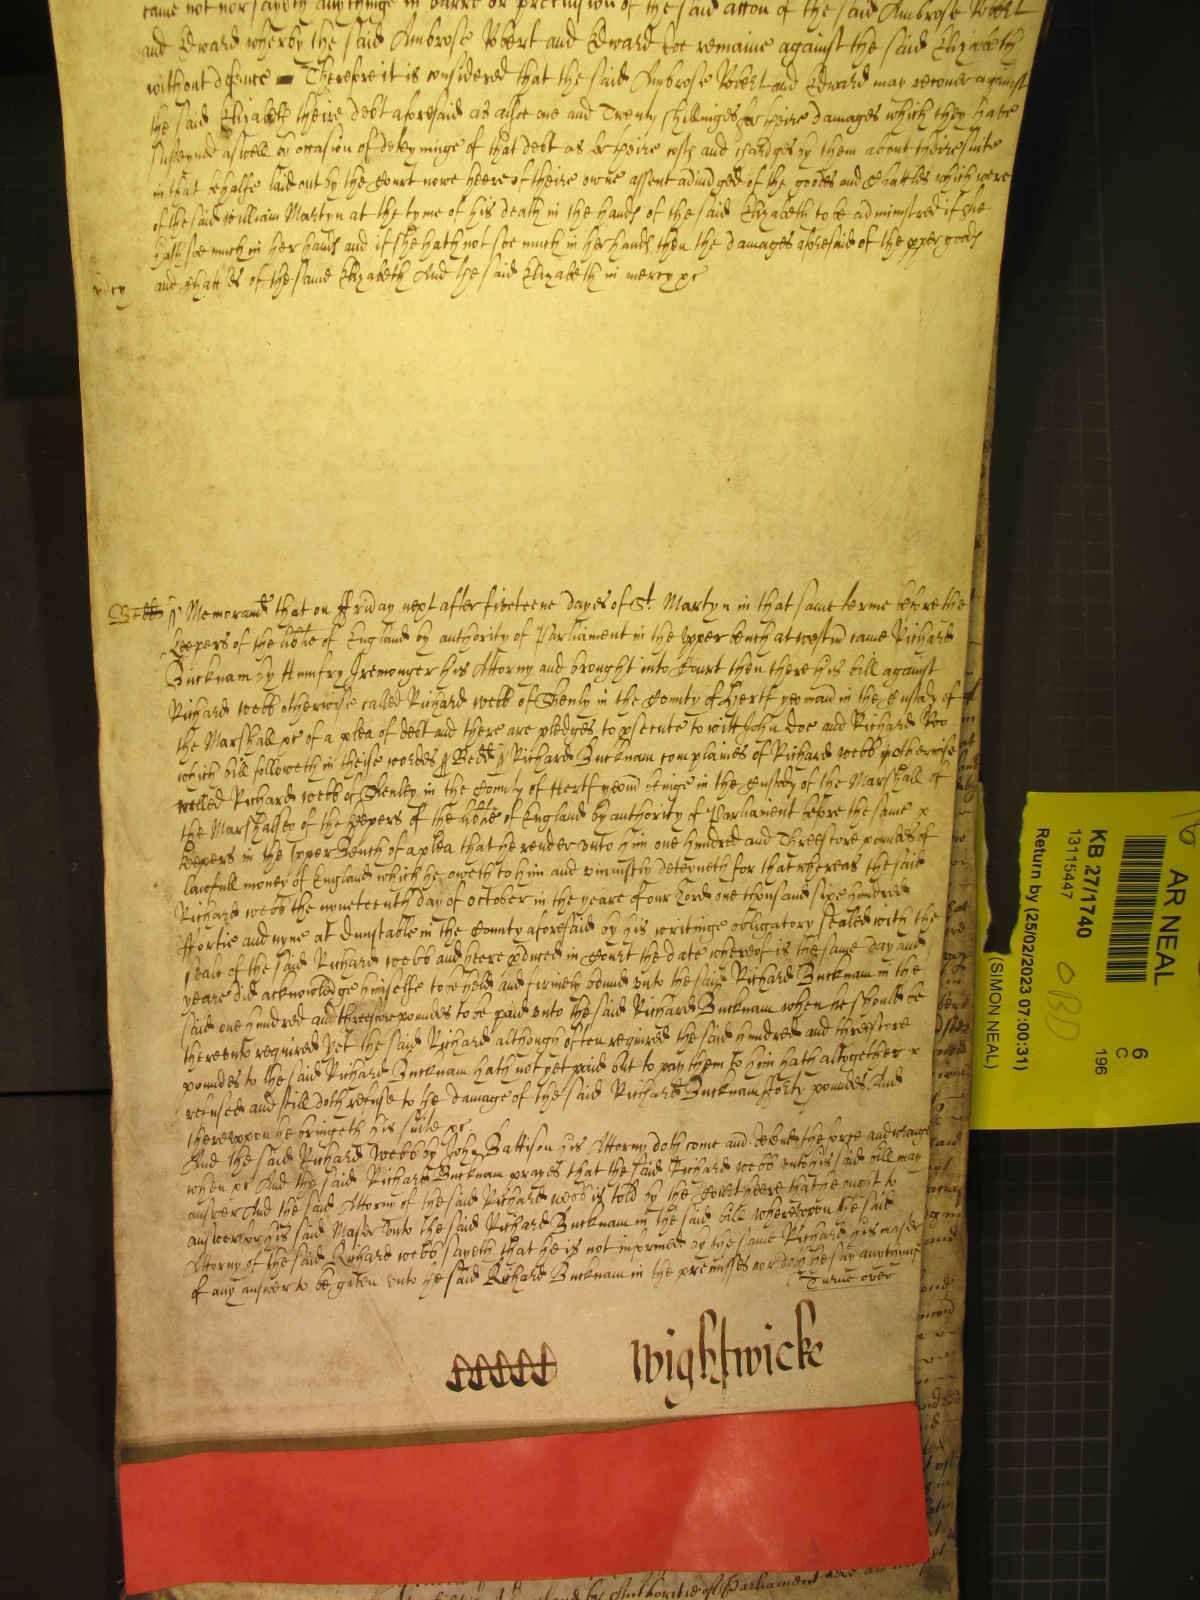 came not nor sayeth anythinge in barre or preclusion of the said accon of the said Ambrose Robert
and Edward wherby the said Ambrose Robert and Edward doe remaine against the said Elizabeth
without defence Therefore it is considered that the said Ambrose Robert and Edward may recover against
the said Elizabeth theire debt aforesaid as alsoe one and Twenty shillinges for theire damages which they have
susteyned aswell by occasion of deteyninge of that debt as for theire costs and chardges by them about theire suite
in that behalfe laid out by the Court nowe heere of theire owne assent adiudged of the goods and Chattles which were
of the said William Martyn at the tyme of his death in the hands of the said Elizabeth to be administred if she
hath soe much in her hands and if she hath not soe much in her hands then the damages aforesaid of the pper goods
and Chattles of the same Elizabeth And the said Elizabeth in mercy &c
mcy
Bedd Memorand that on Friday next after fifteene dayes of St Martyn in that same terme before the
Keepers of the libtie of England by authority of Parliament in the Vpper bench at westm came Richard
Bucknam by Humfry Iremonger his Attorny and brought into Court then there his bill against
Richard webb otherwise called Richard webb of Shenly in the County of Hertf yeoman in the Custody of
the Marshall &c of a plea of debt and there are pledges to psecute to witt John Doe and Richard Roo
which bill followeth in theise wordes Bedd Richard Bucknam complaines of Richard webb otherwise
called Richard webb of Shenley in the County of Hertf yeom beinge in the Custody of the Marshall of
the Marshalsey of the keepers of the libtie of England by authority of Parliament before the same
keepers in the Vpper Bench of a plea that he render vnto him one hundred and Threescore poundes of
lawfull money of England which he oweth to him and vniustly deteyneth for that whereas the said
Richard webb the nyneteenth day of october in the yeare of our Lord one thousand sixe hundred
Fortie and nyne at Dunstable in the County aforesaid by his writinge obligatory sealed with the
seale of the said Richard webb and heere pduced in Court the date whereof is the same day and
yeare did acknowledge himselfe to be held and firmely bound vnto the said Richard Bucknam in the
said one hundred and threescore poundes to be paid vnto the said Richard Bucknam when he should be
therevnto required Yet the said Richard although often required the said hundred and threescore
poundes to the said Richard Bucknam hath not yet paid but to pay them to him hath altogether
refused and still doth refuse to the damage of the said Richard Bucknam Forty poundes And
therevppon he bringeth his suite &c
And the said Richard Webb by John Battison his Attorny doth come and defend the force and iniurie
when &c And the said Richard Bucknam prayes that the said Richard webb vnto his said bill may
answer And the said Attorny of the said Richard webb is told by the Court heere that he ought to
answer for his said Master vnto the said Richard Bucknam in the said bill wherevppon the said
Attorny of the said Richard webb sayeth that he is not informed by the same Richard his master
of any answer to be given vnto the said Richard Bucknam in the premisses nor doth he say anythinge
Turne over
Wightwicke
by Authoritie of Parliament
AR NEAL
KB 27/1740
13115447
Return by (25/02/2023 07:00:31)
(SIMON NEAL)
6
C
196